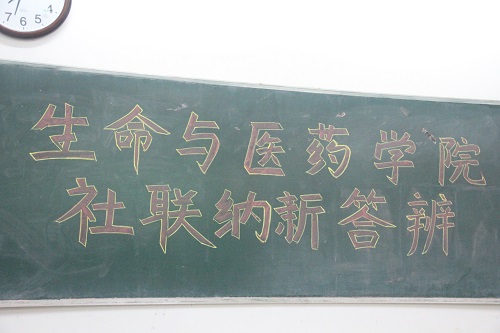 7 6 5 4
生命与医药学院
社联纳新答辨